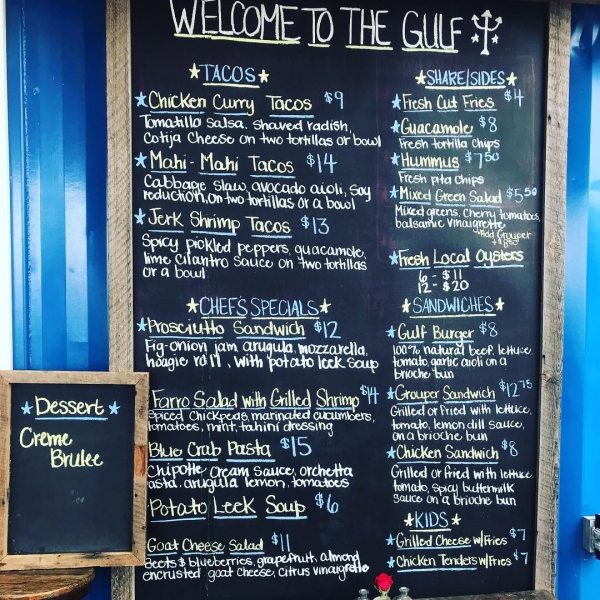 WELCOME TO THE GULF
TACOS
Chicken Curry Tacos $9
Tomatillo salsa, shaved radish,
Cotija Cheese on two tortillas or bowl
Mahi-Mahi Tacos $14
Cabbage slaw, avocado aioli, soy
reduction, on two tortillas or a bowl
Jerk Shrimp Tacos $13
Spicy pickled peppers, guacamole,
lime cilantro sauce on two tortillas
or a bowl
CHEF'S SPECIALS
Prosciutto Sandwich $12
Fig-onion jam arugula, mozzarella,
hoagie roll, with potato leek soup
Farro Salad with Grilled Shrimp $14
Spiced chickpeas, marinated cucumbers,
tomatoes, mint, tahini dressing
Blue Crab Pasta $15
Chipotle cream sauce, orchetta
asta, arugula lemon, tomatoes
Potato Leek Soup $6
Goat Cheese Salad $11
Beets & blueberries, grapefruit, almond
encrusted goat cheese, citrus vinaigrette
SHARE/SIDES
Fresh Cut Fries $4
Guacamole $8
Fresh tortilla chips
Hummus $7.50
Fresh pita chips
Mixed Green Salad $5.50
Mixed greens, Cherry tomatoes,
balsamic vinaigrette
Add Grouper
+$8.50
Fresh Local Oysters
6 - $11
12 - $20
SANDWICHES
Gulf Burger $8
100% natural beef, lettuce,
tomato, garlic aioli on a
brioche bun
Grouper Sandwich $12.75
Grilled or fried with lettuce,
tomato, lemon dill sauce,
on a brioche bun
Chicken Sandwich $8
Grilled or fried with lettuce
tomato, spicy buttermilk
sauce on a brioche bun
KIDS
Grilled Cheese w/Fries $7
Chicken Tenders w/Fries $7
Dessert
Creme
Brulee